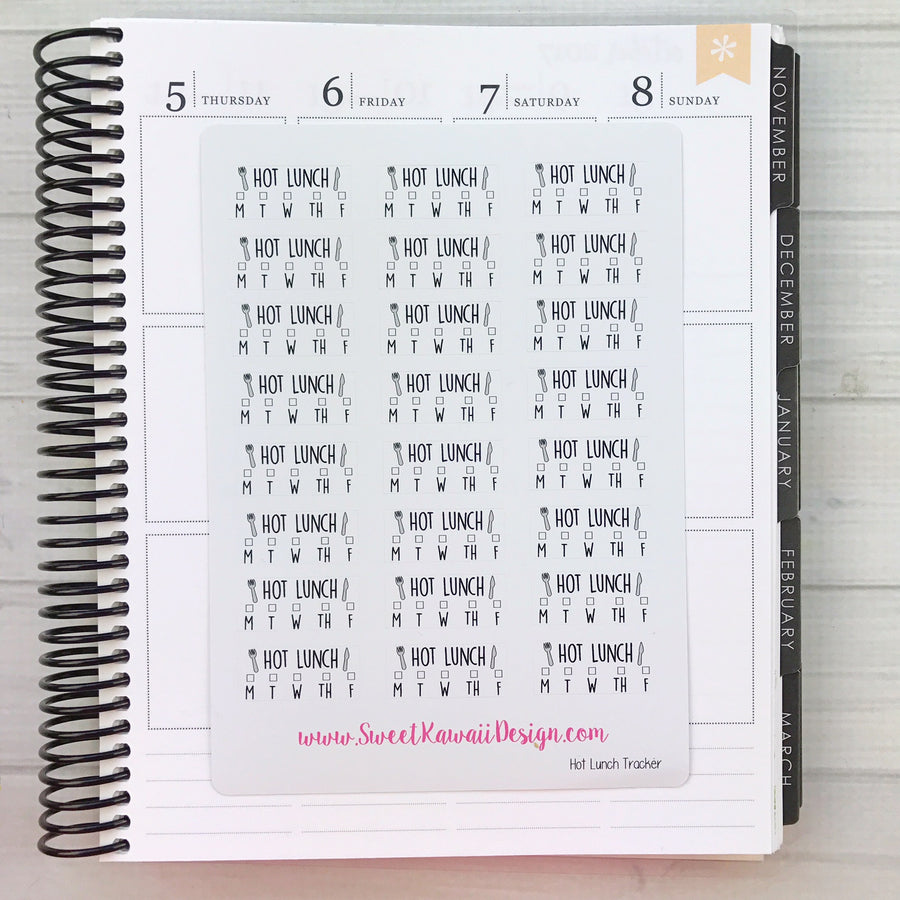 5 THURSDAY 6 FRIDAY 7 SATURDAY 8 SUNDAY
HOT LUNCH HOT LUNCH HOT LUNCH
M T W TH F M T W TH F M T W TH F
HOT LUNCH HOT LUNCH HOT LUNCH
M T W TH F M T W TH F M T W TH F
HOT LUNCH HOT LUNCH HOT LUNCH
M T W TH F M T W TH F M T W TH F
HOT LUNCH HOT LUNCH HOT LUNCH
M T W TH F M T W TH F M T W TH F
HOT LUNCH HOT LUNCH HOT LUNCH
M T W TH F M T W TH F M T W TH F
HOT LUNCH HOT LUNCH HOT LUNCH
M T W TH F M T W TH F M T W TH F
HOT LUNCH HOT LUNCH HOT LUNCH
M T W TH F M T W TH F M T W TH F
HOT LUNCH HOT LUNCH HOT LUNCH
M T W TH F M T W TH F M T W TH F
www.SweetKawaiiDesign.com
Hot Lunch Tracker
NOVEMBER
DECEMBER
JANUARY
FEBRUARY
MARCH